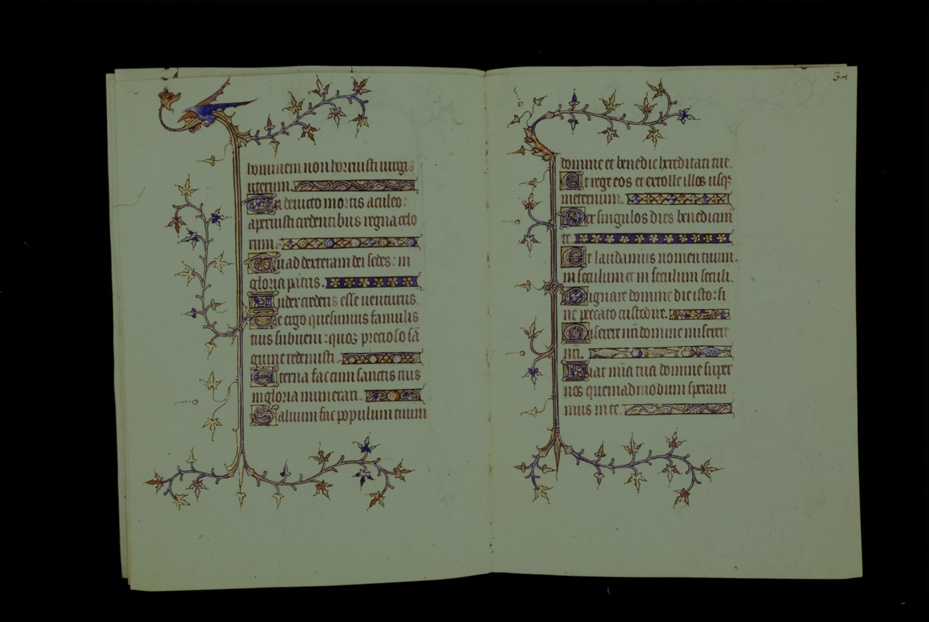 hominem non horruisti uirgis
uterum.
Tu deuicto mortis aculeo:
aperuisti credentibus regna celo
rum.
Tu ad dexteram dei sedes: in
gloria patris.
Iudex crederis esse uenturus.
Te ergo quesumus famulis
tuis subueni: quos precioso sã
guine redemisti.
Eterna fac cum sanctis tuis
in gloria munerari.
Saluum fac populum tuum
domine et benedic hereditati tue.
Et rege eos et extolle illos usqȝ
in eternum.
Per singulos dies benedicim
te.
Et laudamus nomen tuum.
in seculum et in seculum seculi.
Dignare domine die isto: si
ne peccato custodire.
Miserere nr̃i domine miserere
nr̃i.
Fiat mĩa tua domine super
nos quemadmodum speraui
mus in te.